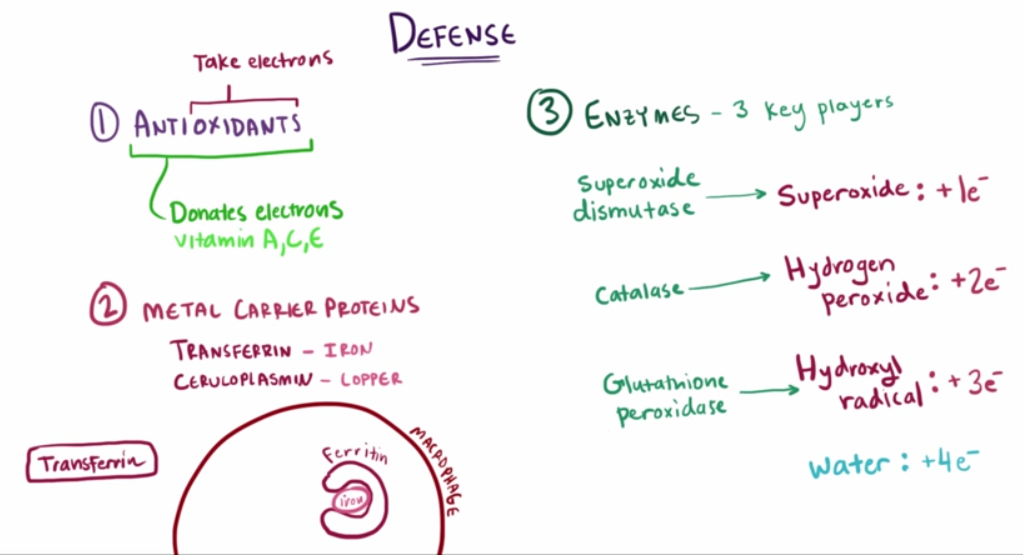 DEFENSE
Take electrons
1 ANTIOXIDANTS
Donates electrons
vitamin A,C,E
2 METAL CARRIER PROTEINS
TRANSFERRIN - IRON
CERULOPLASMIN - COPPER
Transferrin
Ferritin
iron
MACROPHAGE
3 ENZYMES - 3 key players
Superoxide
dismutase
Superoxide: +1e⁻
Catalase
Hydrogen
peroxide: +2e⁻
Glutathione
peroxidase
Hydroxyl
radical: +3e⁻
water: +4e⁻